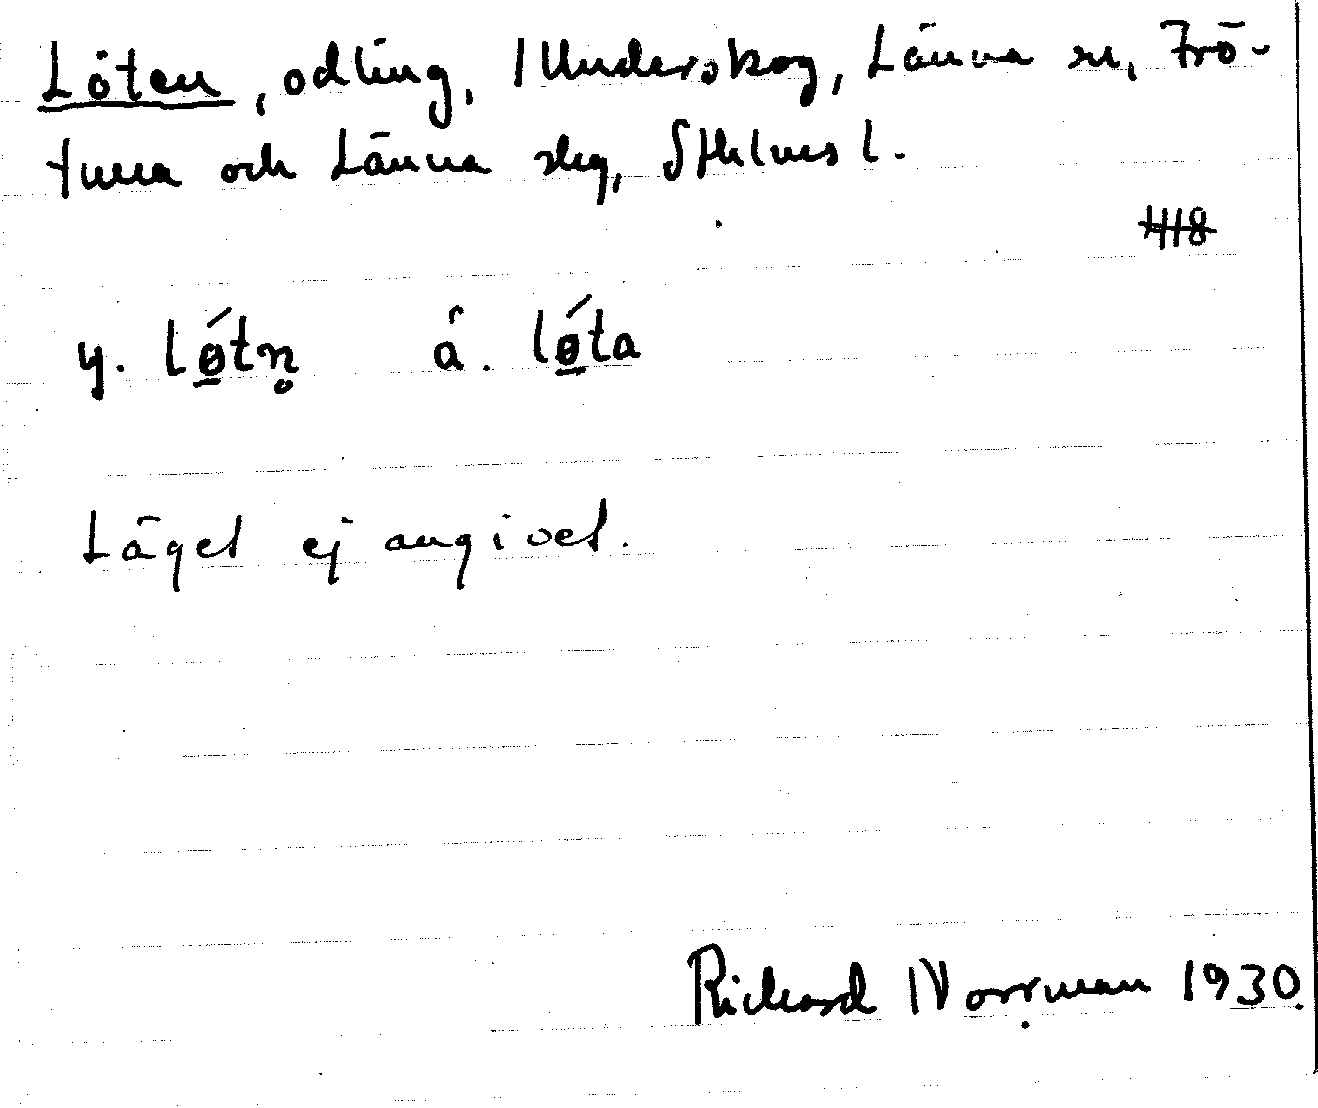 Löten, odling, Munderskog, Länna sn, Frö-
tuna och Länna skg, Sthlms l.
y. lǿ̱tn̥ á. lǿ̱ta
Läget ej angivet.
Rickard Norrman 1930.